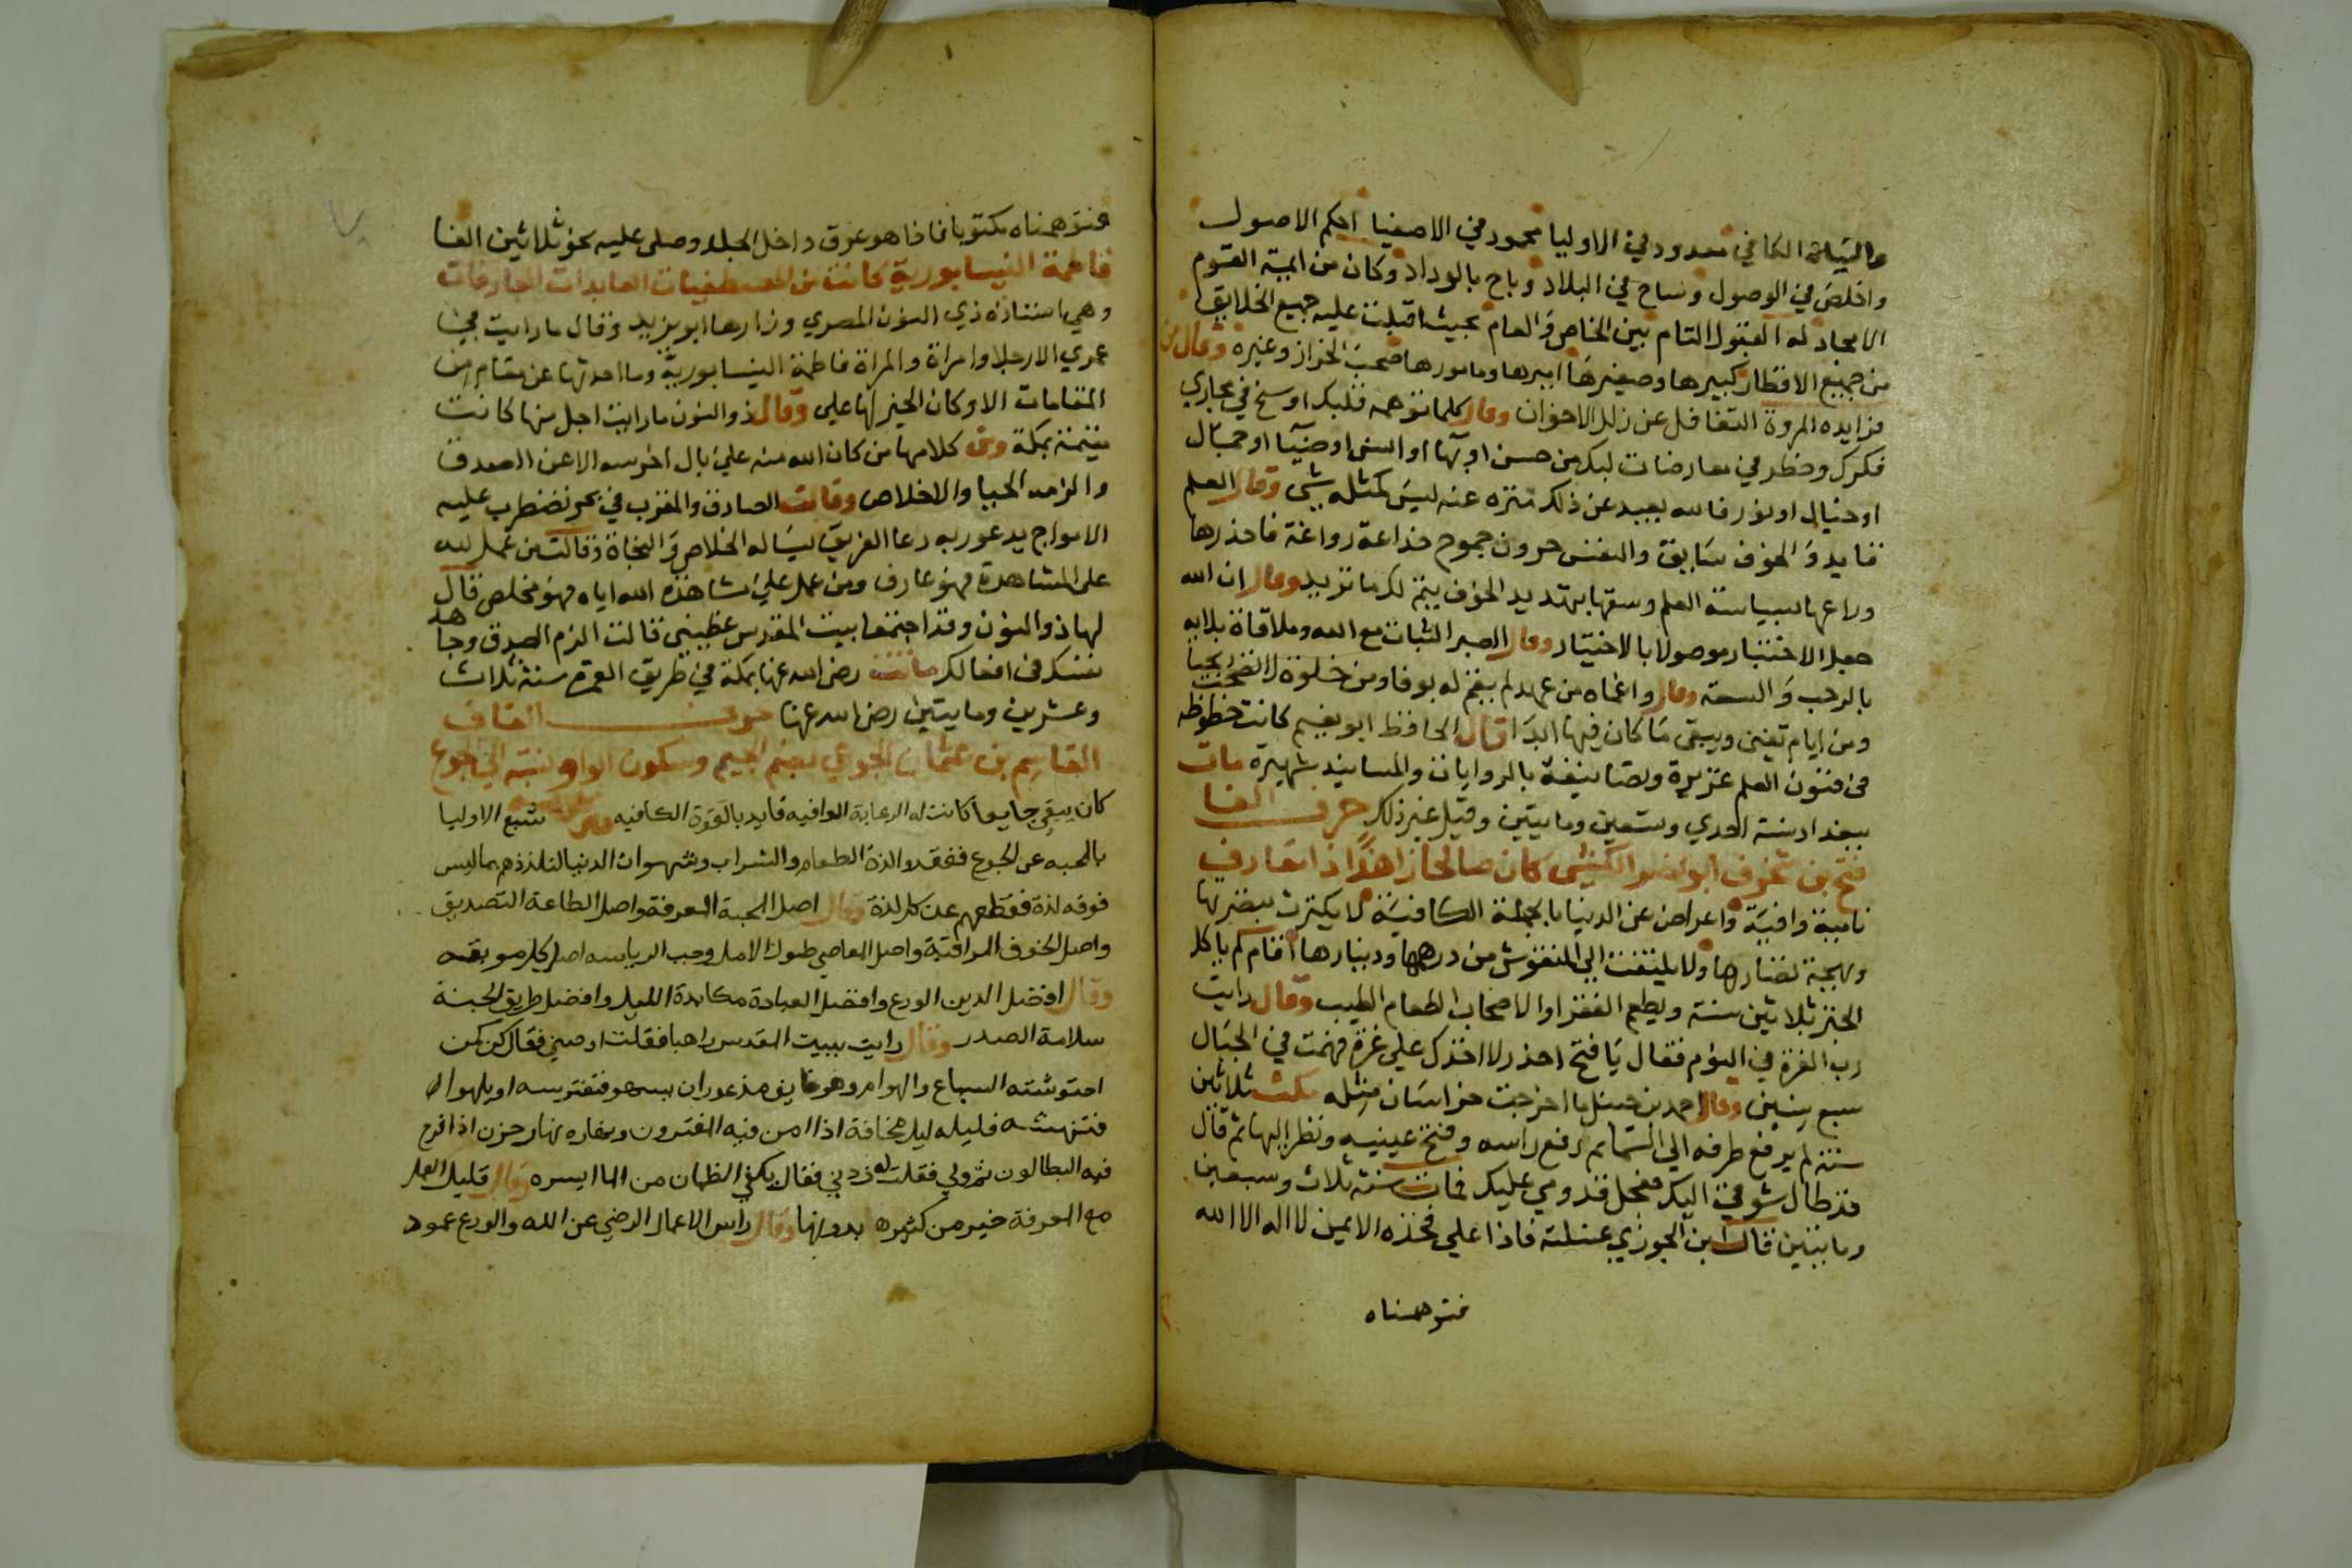 والنيلة الكافي معدود في الاوليا محمود في الاصفيا احكم الاصول
واخلص في الوصول وساح في البلاد وباح بالوداد وكان من ايمة القوم
الامجاد له القبول التام بين الخاص والعام بحيث اقبلت عليه جميع الخلايق
من جميع الاقطار كبيرها وصغيرها اميرها ومامورها صحب الخراز وغيره وقال من
فرايده المروة التغافل عن زلل الاخوان وقال كلما توهمه قلبك او سنح في مجاري
فكرك وخطر في معارضات لبك من حسن او بها او انس او ضيا او جمال
او خيال او نور فالله بعيد عن ذلك منزه عنه ليس كمثله شي وقال العلم
قايد والخوف سايق والنفس حرون جموح خداعة رواغة فاحذرها
وراعها بسياسة العلم وسقها بتهديد الخوف يتم لك ما تريد وقال ان الله
جعل الاختبار موصولا بالاختيار وقال الصبر الثبات مع الله وملاقاة بلايه
بالرحب والسعة وقال واغماه من عهد لم يقم له بوفا ومن خلوة لا تصحب بحيا
ومن ايام تفنى ويبقى ما كان فيها ابدا قال الحافظ ابو نعيم كانت حظوظه
من فنون العلم غزيرة وتصانيفه بالروايات والمسانيد شهيرة مات
ببغداد سنة احدي وتسعين ومايتين وقيل غير ذلك حرف الفا
فتح بن شخرف ابو نصر الكشي كان صالحا زاهدا ذا معارف
نامية وافية واعراض عن الدنيا بالجملة الكافية لا يكترث بنضرتها
وبهجة نضارها ولا يلتفت الي المنقوش من درهمها ودينارها اقام لم ياكل
الخبز ثلاثين سنة ويطعم الفقرا والاصحاب الطعام الطيب وقال رايت
رب العزة في النوم فقال يا فتح احذر لا اخذك علي غرة فهمت في الجبال
سبع سنين وقال احمد بن حنبل ما اخرجت خراسان مثله مكث ثلاثين
سنة لم يرفع طرفه الي السما ثم رفع راسه وفتح عينيه ونظر اليها ثم قال
قد طال شوقي اليك فعجل قدومي عليك فمات سنة ثلاث وسبعين
ومايتين قال ابن الجوزي غسلته فاذا علي فخذه الايمن لا اله الا الله
فتوهمناه
فتوهمناه مكتوبا فاذا هو عرق داخل الجلد وصلى عليه نحو ثلاثين الفا
فاطمة النيسابورية كانت من المصطفيات العابدات العارفات
وهي استاذة ذي النون المصري وزارها ابو يزيد وقال ما رايت في
عمري الا رجلا وامراة والمراة فاطمة النيسابورية وما احدثها عن مقام من
المقامات الا وكان الخبر لها علي وقال ذو النون ما رايت اجل منها كانت
مقيمة بمكة ومن كلامها من كان الله منه علي بال اخرسه الا عن الصدق
والزمه الحيا والاخلاص وقالت الصادق والمقرب في بحر تضطرب عليه
الامواج يدعو ربه دعا الغريق يساله الخلاص والنجاة وقالت من عمل لله
على المشاهدة فهو عارف ومن عمل علي مشاهدة الله اياه فهو مخلص قال
لها ذو النون وقد اجتمعا ببيت المقدس عظيني قالت الزم الصدق وجاهد
نفسك في افعالك ماتت رضى الله عنها بمكة في طريق العمرة سنة ثلاث
وعشرين ومايتين رضى الله عنها حرف القاف
القاسم بن عثمان الجوعي بضم الجيم وسكون الواو نسبة الي الجوع
كان يبقى جايعا كانت له الرعاية الوافيه فايد بالقوة الكافيه قال شبع الاوليا
بالمحبه عن الجوع ففقدوا لذة الطعام والشراب وشهوات الدنيا لتلذذهم بما ليس
فوقه لذة فقطعهم عن كل لذة وقال اصل المحبة المعرفة واصل الطاعة التصديق
واصل الخوف المراقبة واصل المعاصي طول الامل وحب الرياسه اصل كل موبقه
وقال افضل الدين الورع وافضل العبادة مكابدة الليل وافضل طريق الجنة
سلامة الصدر وقال رايت ببيت المقدس راهبا فقلت اوصني فقال كن كمن
احتوشته السباع والهوام وهو خايف مذعور ان يسهو فتفترسه او يلهو
فتنهشه فليله ليل مخافة اذا امن فيه المغترون ونهاره نهار حزن اذا فرح
فيه البطالون ثم ولي فقلت له زدني فقال يكفي الظمان من الما ايسره وقال قليل العمل
مع المعرفة خير من كثيره بدونها وقال راس الاعمال الرضي عن الله والورع عمود